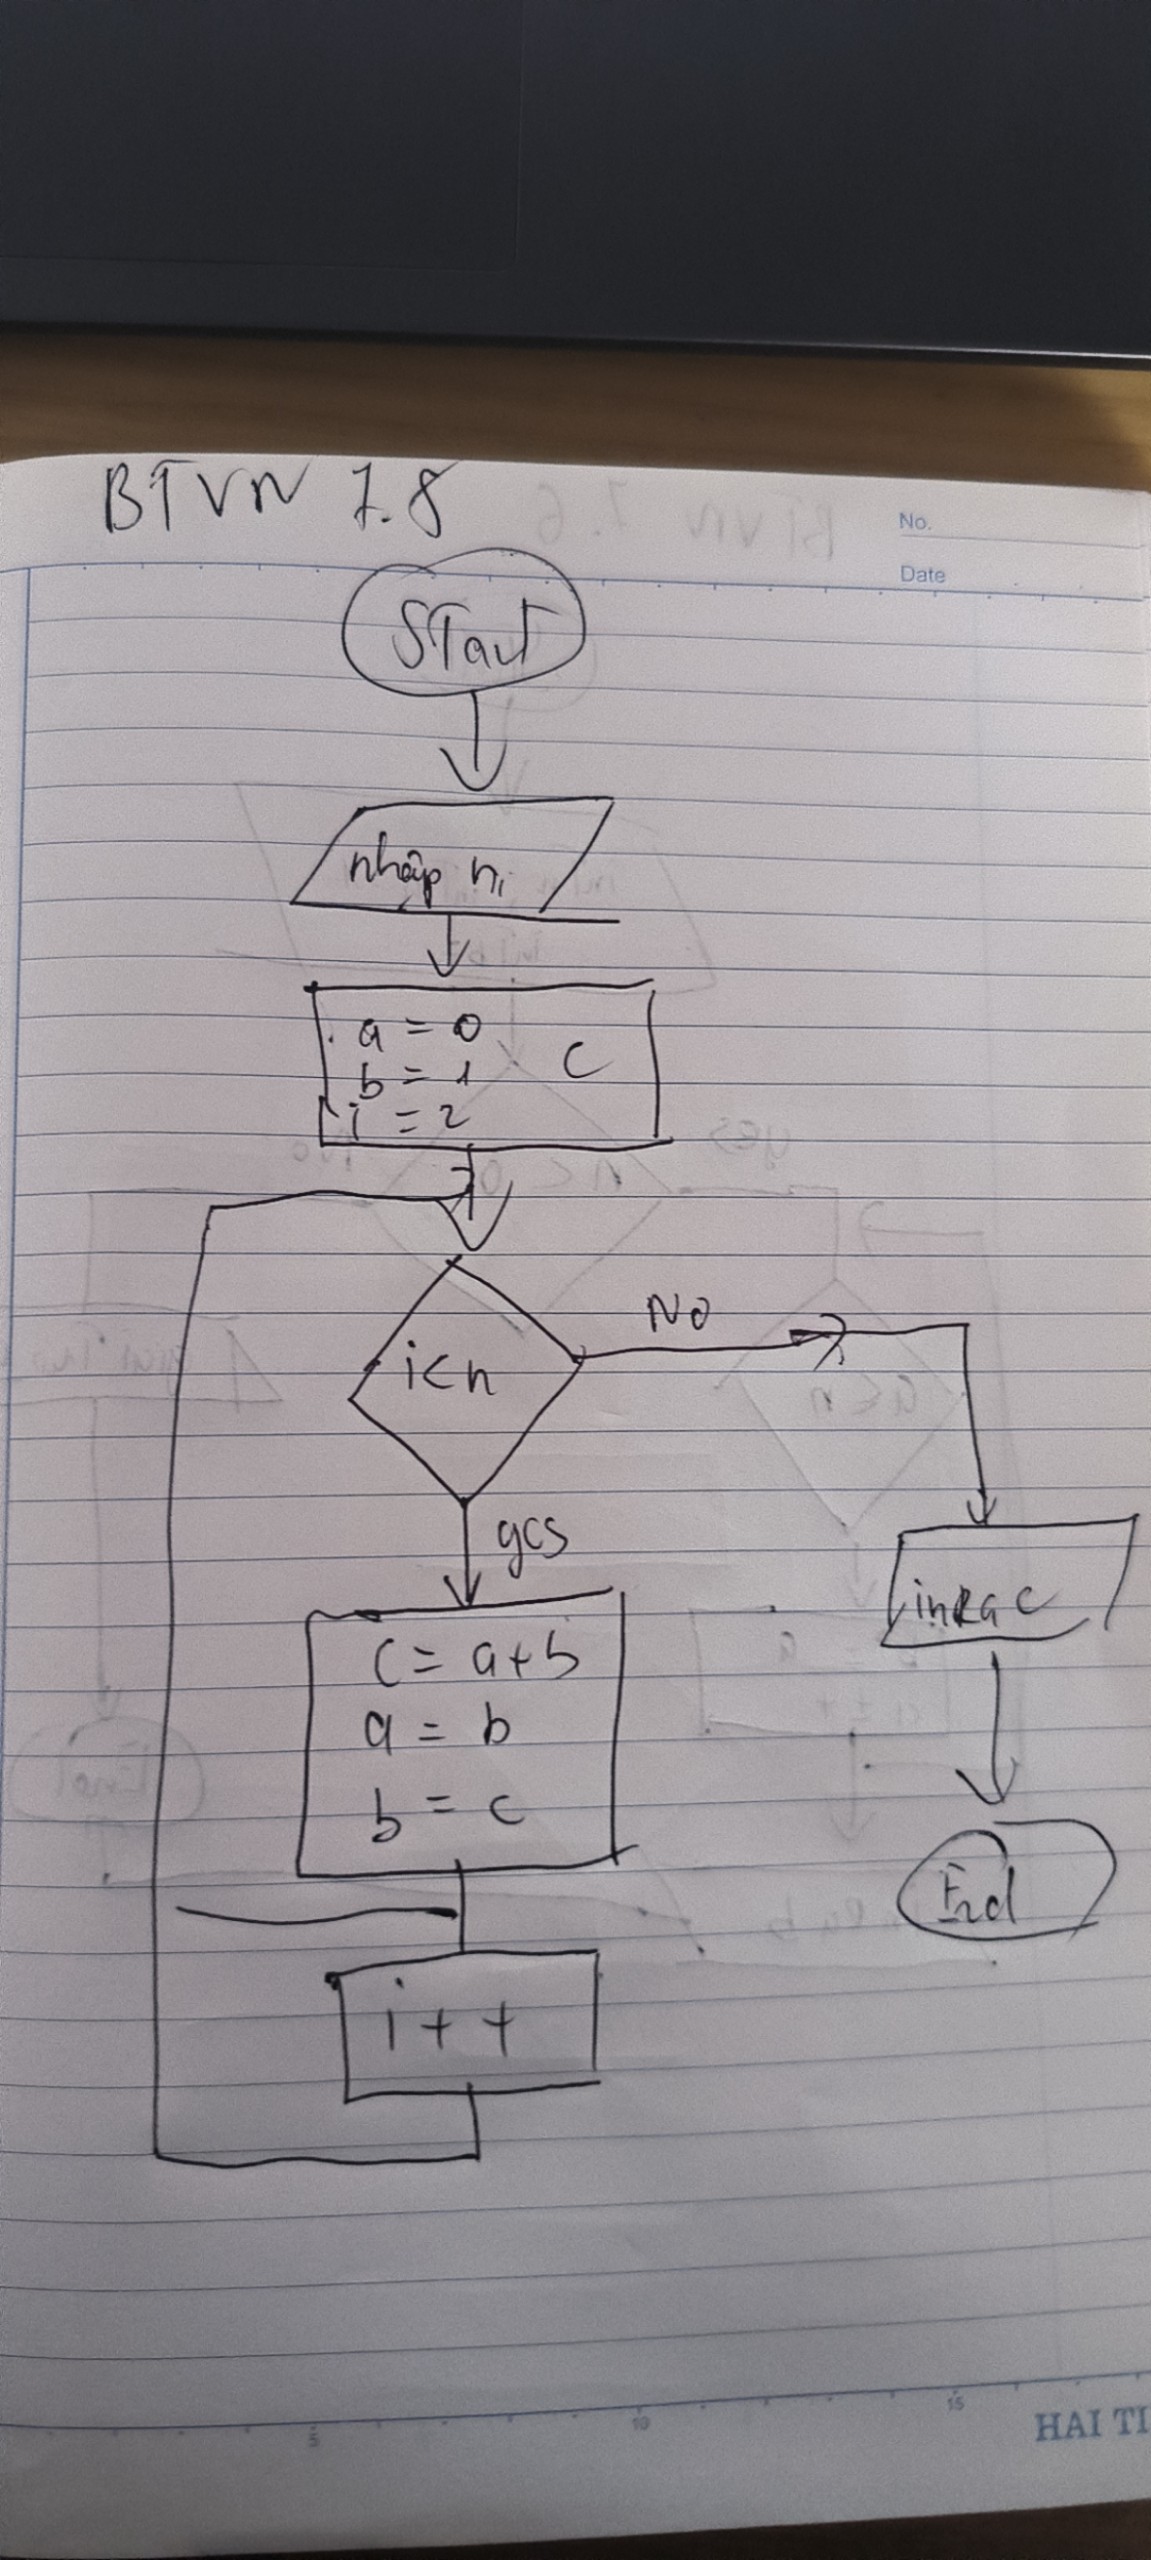 BTVN 7.8
No.
Date
Start
nhập n,
a = 0
b = 1 C
i = 2
i<n
No
yes
c = a+b
a = b
b = c
in Ra c
End
i++
5 10 15
HAI TI